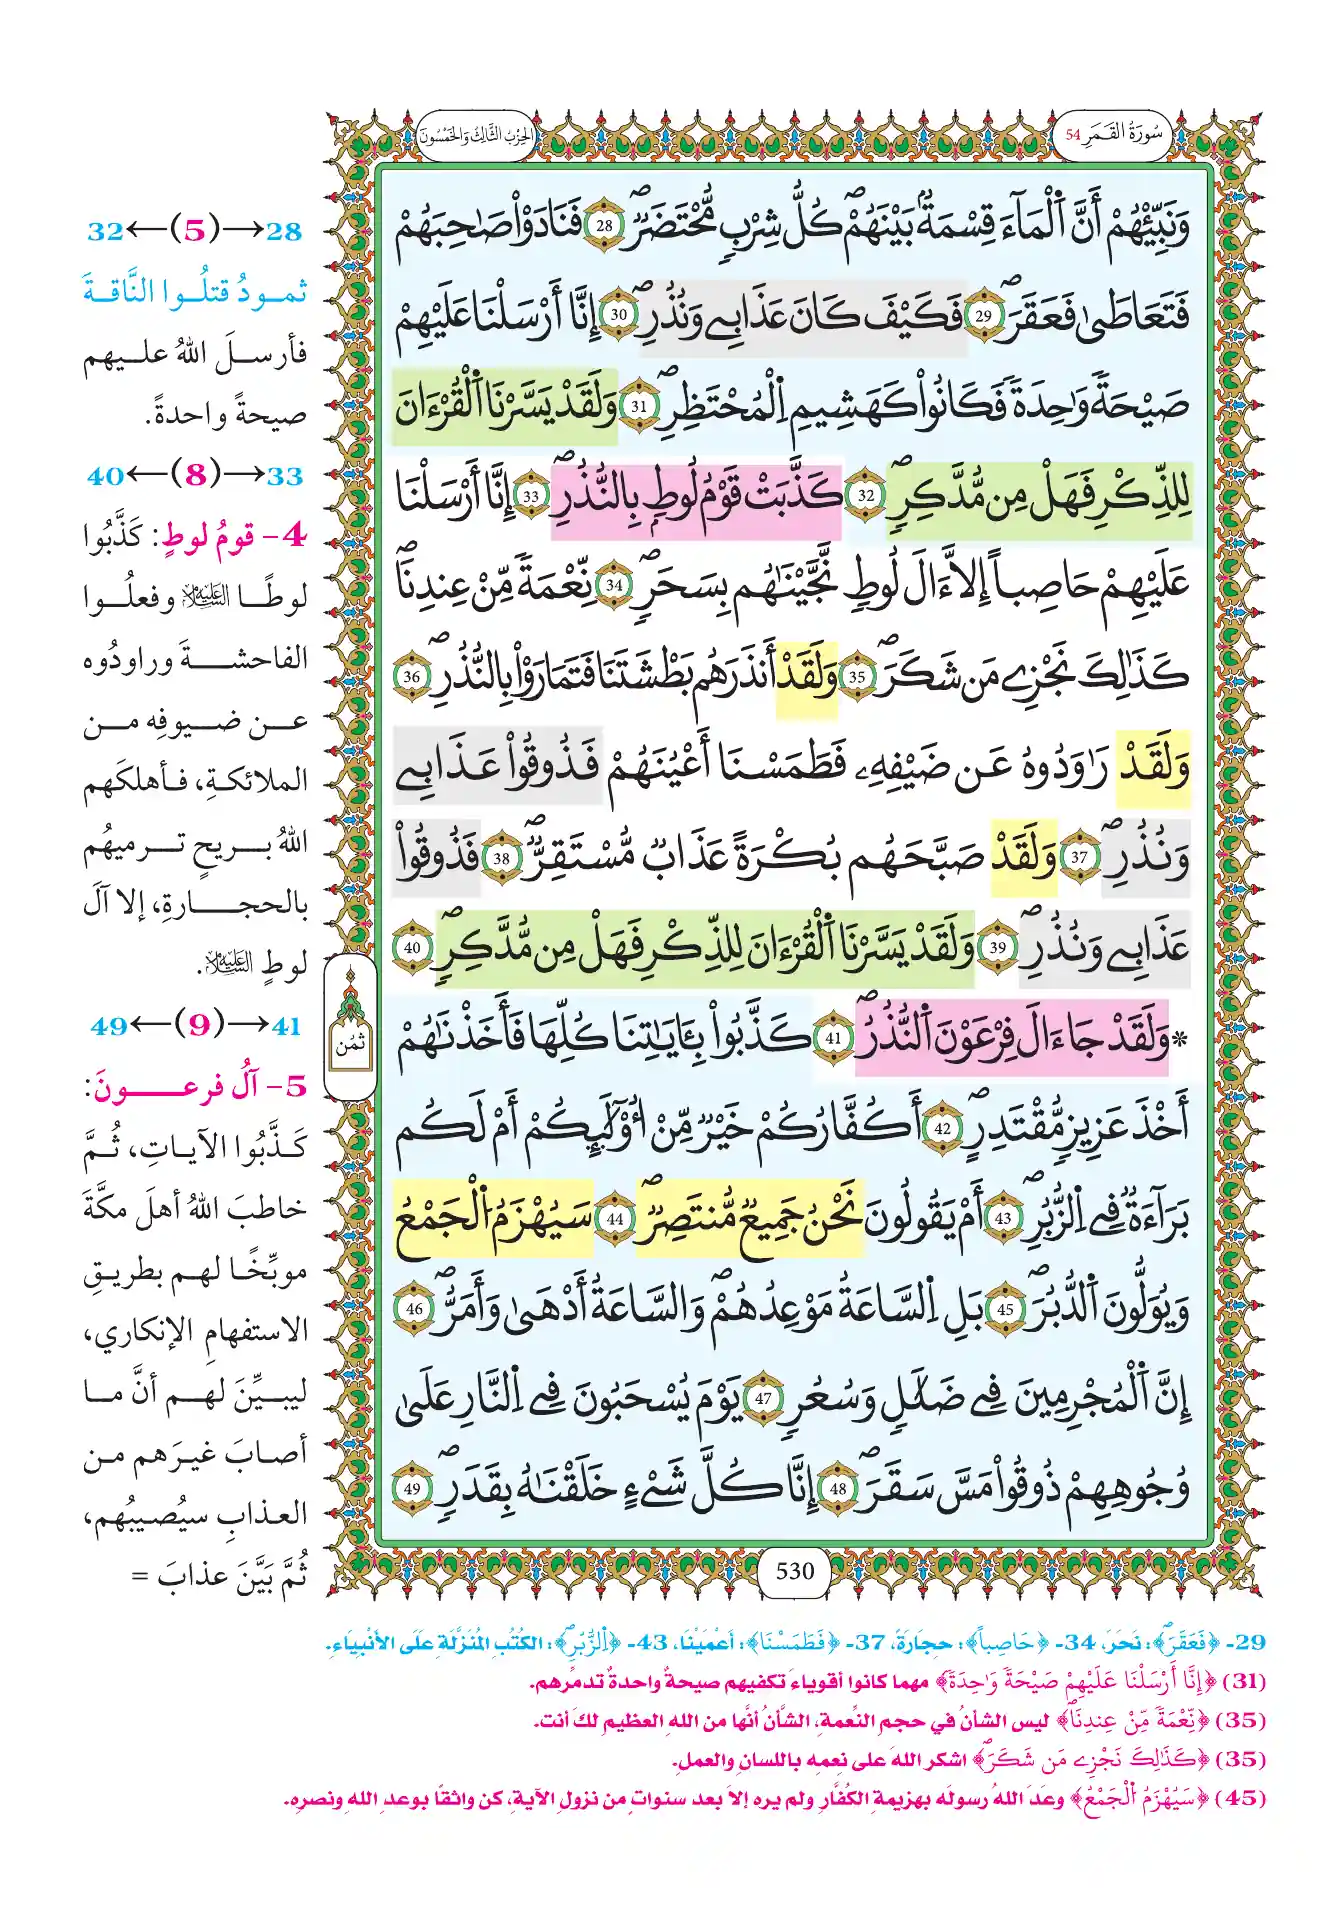 سُورَةُ القَمَرِ 54
الحِزْبُ الثَّالِثُ وَالخَمْسُونَ
وَنَبِّئْهُمْ أَنَّ اَ۬لْمَآءَ قِسْمَةٌۢ بَيْنَهُمْۖ كُلُّ شِرْبٖ مُّحْتَضَرٞۖ 28 فَنَادَوْاْ صَٰحِبَهُمْ
فَتَعَاطَىٰ فَعَقَرَۖ 29 فَكَيْفَ كَانَ عَذَابِے وَنُذُرِۖ 30 إِنَّآ أَرْسَلْنَا عَلَيْهِمْ
صَيْحَةٗ وَٰحِدَةٗ فَكَانُواْ كَهَشِيمِ اِ۬لْمُحْتَظِرِۖ 31 وَلَقَدْ يَسَّرْنَا اَ۬لْقُرْءَانَ
لِلذِّكْرِ فَهَلْ مِن مُّدَّكِرٖۖ 32 كَذَّبَتْ قَوْمُ لُوطِۢ بِالنُّذُرِۖ 33 إِنَّآ أَرْسَلْنَا
عَلَيْهِمْ حَاصِباً إِلَّآ ءَالَ لُوطٖ نَّجَّيْنَٰهُم بِسَحَرٖۖ 34 نِّعْمَةٗ مِّنْ عِندِنَاۖ
كَذَٰلِكَ نَجْزِے مَن شَكَرَۖ 35 وَلَقَدْ أَنذَرَهُم بَطْشَتَنَا فَتَمَارَوْاْ بِالنُّذُرِۖ 36
وَلَقَدْ رَٰوَدُوهُ عَن ضَيْفِهِۦ فَطَمَسْنَآ أَعْيُنَهُمْ فَذُوقُواْ عَذَابِے
وَنُذُرِۖ 37 وَلَقَدْ صَبَّحَهُم بُكْرَةً عَذَابٞ مُّسْتَقِرّٞۖ 38 فَذُوقُواْ
عَذَابِے وَنُذُرِۖ 39 وَلَقَدْ يَسَّرْنَا اَ۬لْقُرْءَانَ لِلذِّكْرِ فَهَلْ مِن مُّدَّكِرٖۖ 40
* وَلَقَدْ جَآءَ الَ فِرْعَوْنَ اَ۬لنُّذُرُۖ 41 كَذَّبُواْ بِـَٔايَٰتِنَا كُلِّهَا فَأَخَذْنَٰهُمْ
أَخْذَ عَزِيزٖ مُّقْتَدِرٍۖ 42 أَكُفَّارُكُمْ خَيْرٞ مِّنْ أُوْلَٰٓئِكُمْ أَمْ لَكُم
بَرَآءَةٞ فِے اِ۬لزُّبُرِۖ 43 أَمْ يَقُولُونَ نَحْنُ جَمِيعٞ مُّنتَصِرٞۖ 44 سَيُهْزَمُ اُ۬لْجَمْعُ
وَيُوَلُّونَ اَ۬لدُّبُرَۖ 45 بَلِ اِ۬لسَّاعَةُ مَوْعِدُهُمْۖ وَالسَّاعَةُ أَدْهَىٰ وَأَمَرُّۖ 46
إِنَّ اَ۬لْمُجْرِمِينَ فِے ضَلَٰلٖ وَسُعُرٖ 47 يَوْمَ يُسْحَبُونَ فِے اِ۬لنَّارِ عَلَىٰ
وُجُوهِهِمْ ذُوقُواْ مَسَّ سَقَرَۖ 48 إِنَّا كُلَّ شَےْءٍ خَلَقْنَٰهُ بِقَدَرٖۖ 49
ثُمُن
530
28→(5)←32
ثمودُ قتلُوا النَّاقةَ
فأرسلَ اللهُ عليهم
صيحةً واحدةً.
33→(8)←40
4- قومُ لوطٍ: كَذَّبُوا
لوطًا عليه السلام وفعلُوا
الفاحشةَ وراودُوه
عن ضيوفِه من
الملائكةِ، فأهلكَهم
اللهُ بريحٍ ترميهُم
بالحجارةِ، إلا آلَ
لوطٍ عليه السلام.
41→(9)←49
5- آلُ فرعونَ:
كَذَّبُوا الآياتِ، ثُمَّ
خاطبَ اللهُ أهلَ مكَّةَ
موبِّخًا لهم بطريقِ
الاستفهامِ الإنكاري،
ليبيِّنَ لهم أنَّ ما
أصابَ غيرَهم من
العذابِ سيُصيبُهم،
ثُمَّ بَيَّنَ عذابَ =
29- ﴿فَعَقَرَۖ﴾: نَحَرَ، 34- ﴿حَاصِباً﴾: حِجَارَةً، 37- ﴿فَطَمَسْنَا﴾: أَعْمَيْنَا، 43- ﴿اِ۬لزُّبُرِۖ﴾: الكُتُبِ المُنَزَّلَةِ عَلَى الأَنْبِيَاءِ.
(31) ﴿إِنَّآ أَرْسَلْنَا عَلَيْهِمْ صَيْحَةٗ وَٰحِدَةٗ﴾ مهما كانوا أقوياءَ تكفيهم صيحةٌ واحدةٌ تدمِّرهم.
(35) ﴿نِّعْمَةٗ مِّنْ عِندِنَاۖ﴾ ليس الشأنُ في حجمِ النِّعمةِ، الشَّأنُ أنَّها من اللهِ العظيمِ لكَ أنت.
(35) ﴿كَذَٰلِكَ نَجْزِے مَن شَكَرَۖ﴾ اشكر اللهَ على نِعمِه باللسانِ والعملِ.
(45) ﴿سَيُهْزَمُ اُ۬لْجَمْعُ﴾ وعدَ اللهُ رسولَه بهزيمةِ الكُفَّارِ ولم يره إلا بعد سنواتٍ من نزولِ الآيةِ، كن واثقًا بوعدِ اللهِ ونصرِه.